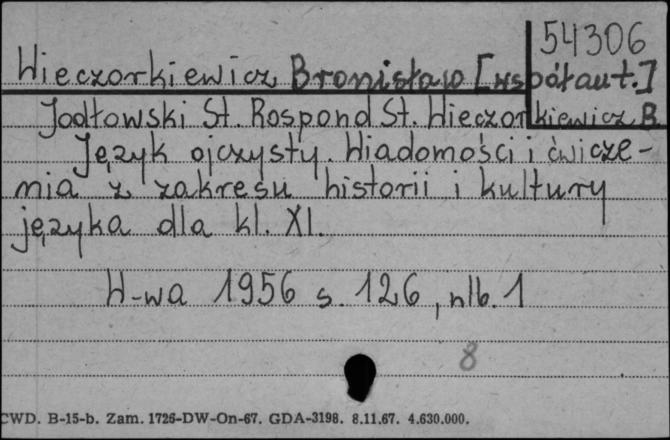 54306
Wieczorkiewicz Bronisław [współaut.]
Jodłowski St. Rospond St. Wieczorkiewicz B.
Język ojczysty. Wiadomości i ćwicze-
nia z zakresu historii i kultury
języka dla kl. XI.
W-wa 1956 s. 126, nlb. 1
8
CWD. B-15-b. Zam. 1726-DW-On-67. GDA-3198. 8.11.67. 4.630.000.